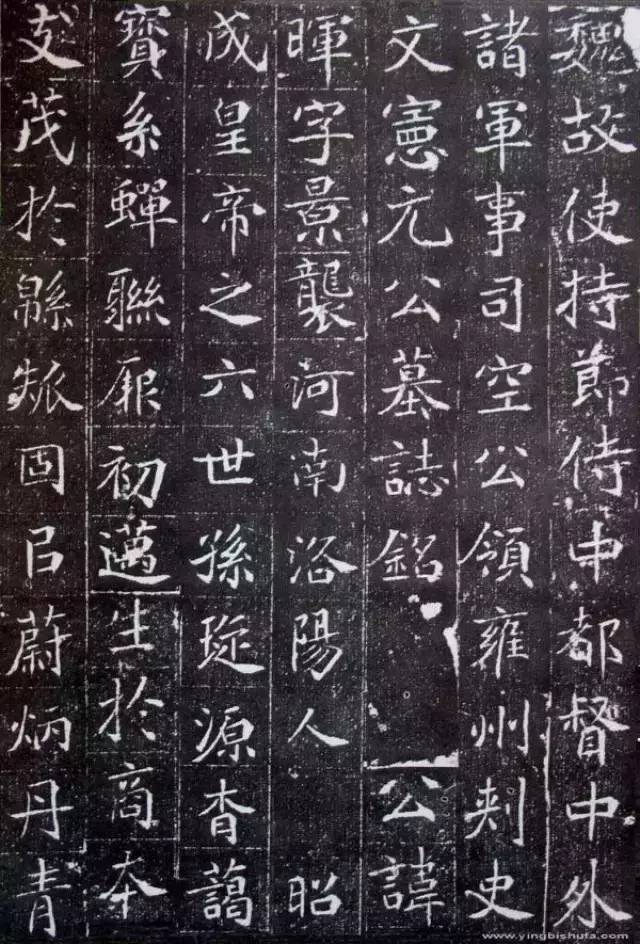 魏故使持節侍中都督中外
諸軍事司空公領雍州刺史
文憲元公墓誌銘 公諱
暉字景襲河南洛陽人 昭
成皇帝之六世孫琁源杳藹
寶系蟬聯厥初邁生於商本
支茂於緜瓞固㠯蔚炳丹青
www.yingbishufa.com